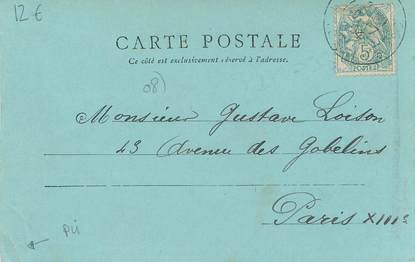 12 €
CARTE POSTALE
Ce côté est exclusivement réservé à l'adresse.
5
POSTES
08)
Monsieur Gustave Loison
43 Avenue des Gobelins
Paris XIIIe
pli